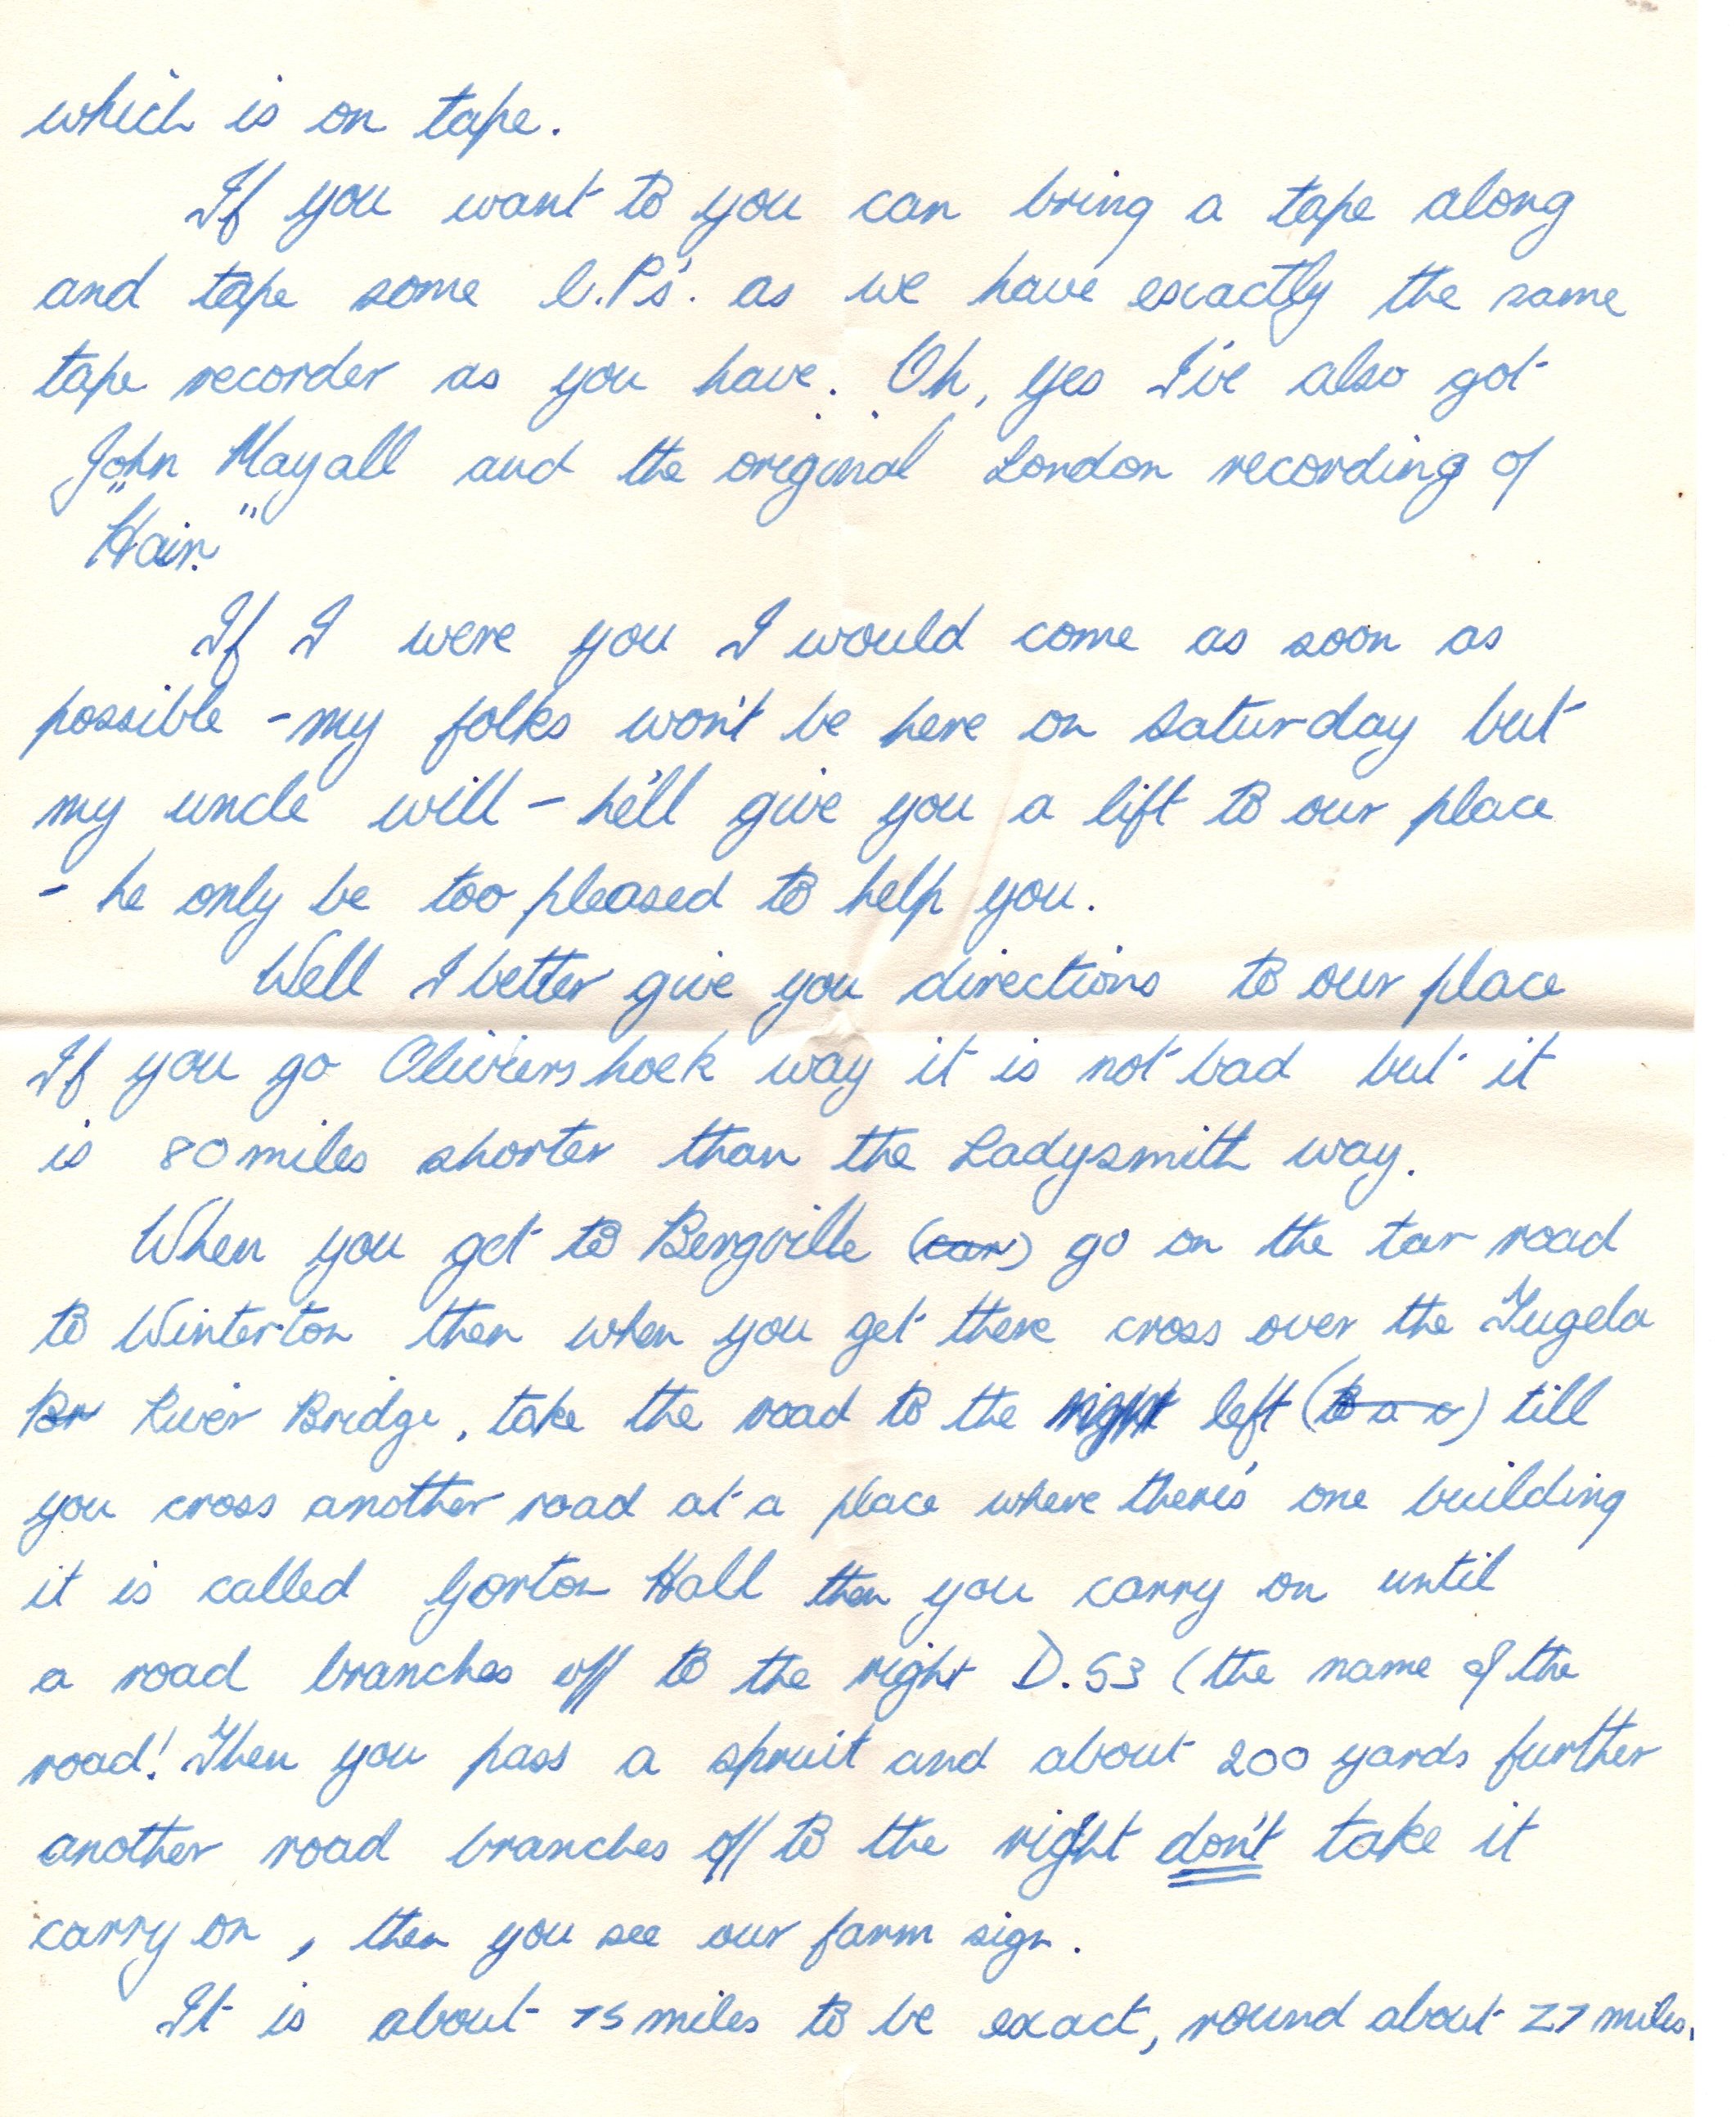 which is on tape.
If you want to you can bring a tape along
and tape some L.P's. as we have exactly the same
tape recorder as you have. Oh, yes I've also got
John Mayall and the original London recording of
"Hair."
If I were you I would come as soon as
possible - my folks won't be here on Saturday but
my uncle will - he'll give you a lift to our place
- he only be too pleased to help you.
Well I better give you directions to our place
If you go Oliviershoek way it is not bad but it
is 80 miles shorter than the Ladysmith way.
When you get to Bergville (car) go on the tar road
to Winterton then when you get there cross over the Tugela
Br River Bridge, take the road to the right left (to a c) till
you cross another road at a place where there's one building
it is called Gorton Hall then you carry on until
a road branches off to the right D.53 (the name of the
road! Then you pass a spruit and about 200 yards further
another road branches off to the right don't take it
carry on, then you see our farm sign.
It is about miles to be exact, round about miles.